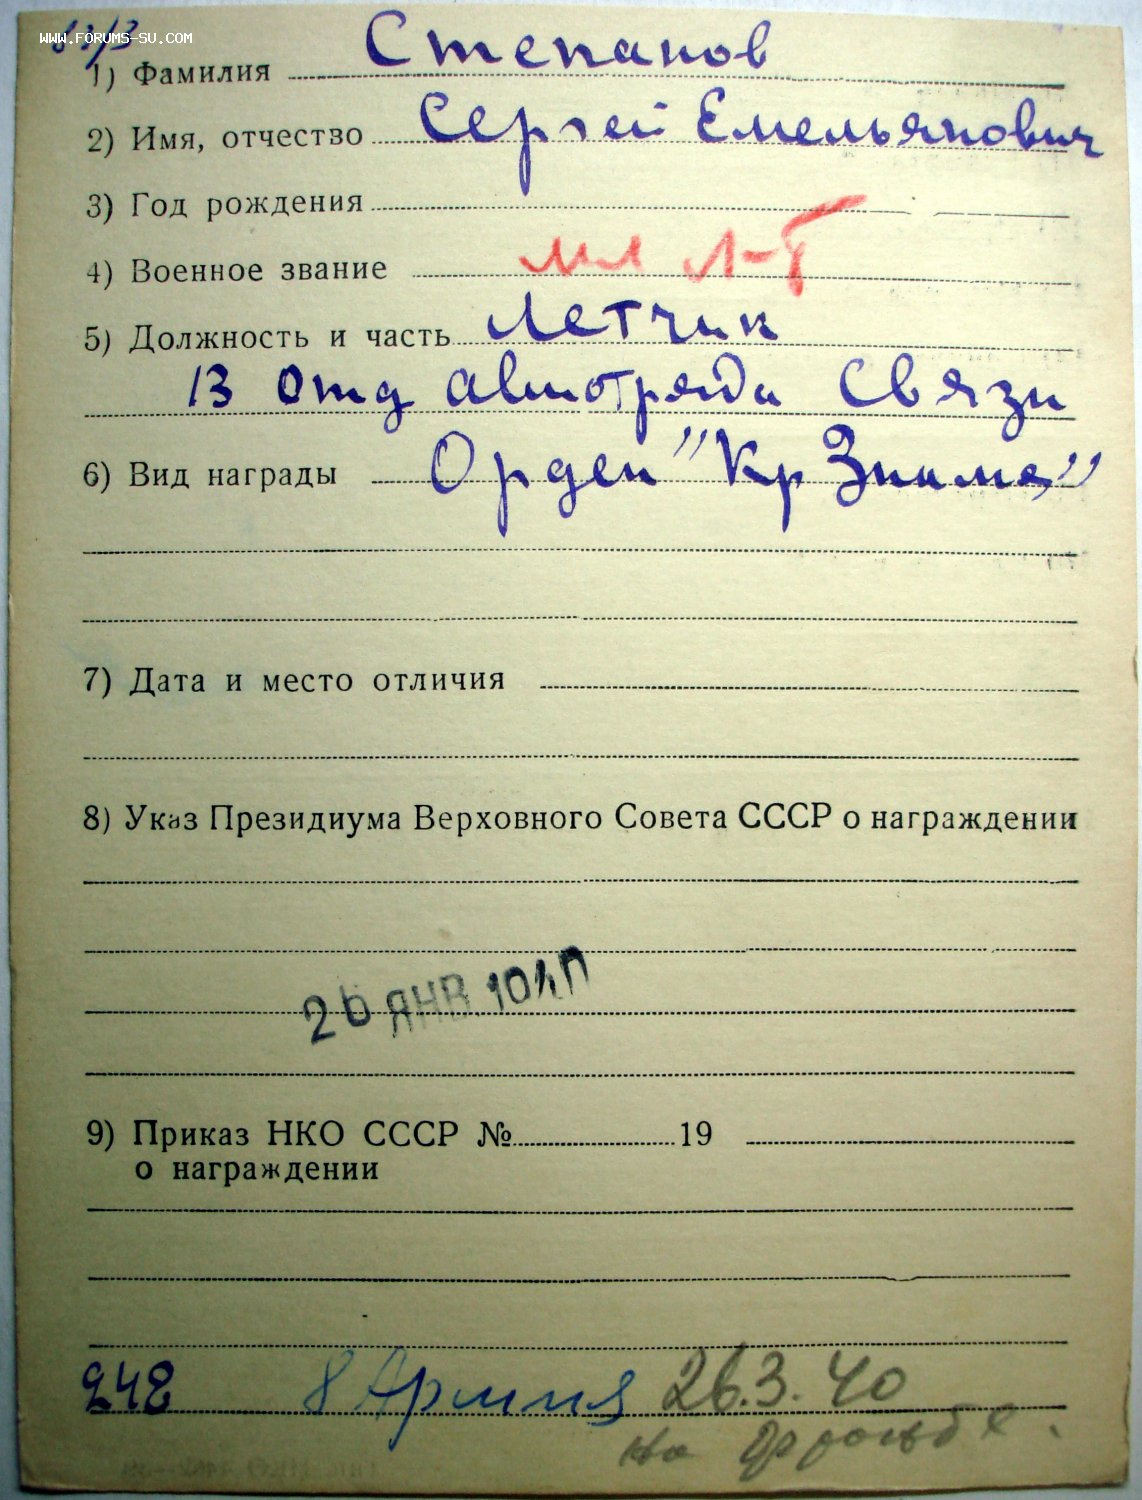 WWW.FORUMS-SU.COM
1) Фамилия Степанов
2) Имя, отчество Сергей Емельянович
3) Год рождения
4) Военное звание мл л-т
5) Должность и часть Летчик
13 отд авиотряда Связи
6) Вид награды Орден "Кр Знамя"
7) Дата и место отличия
8) Указ Президиума Верховного Совета СССР о награждении
26 ЯНВ. 1940
9) Приказ НКО СССР № 19
о награждении
248 8 Армия 26.3.40
на